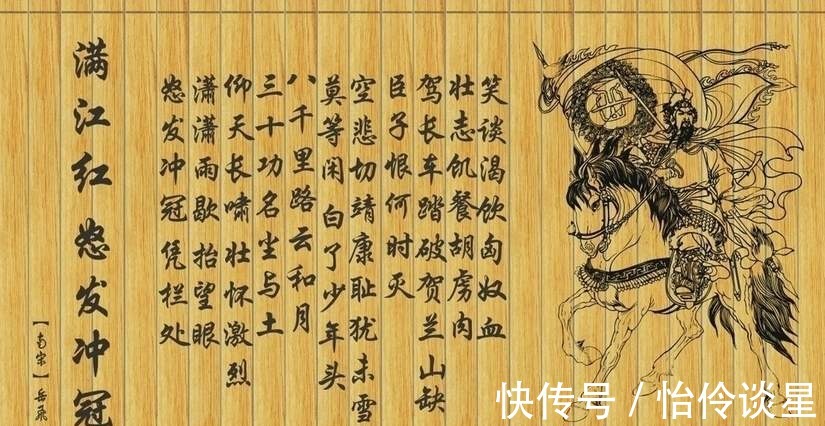 满江红 怒发冲冠
【南宋】岳飞
怒发冲冠凭栏处
潇潇雨歇 抬望眼
仰天长啸壮怀激烈
三十功名尘与土
八千里路云和月
莫等闲 白了少年头
空悲切靖康耻犹未雪
臣子恨何时灭
驾长车踏破贺兰山缺
壮志饥餐胡虏肉
笑谈渴饮匈奴血
快传号 / 怡伶谈星